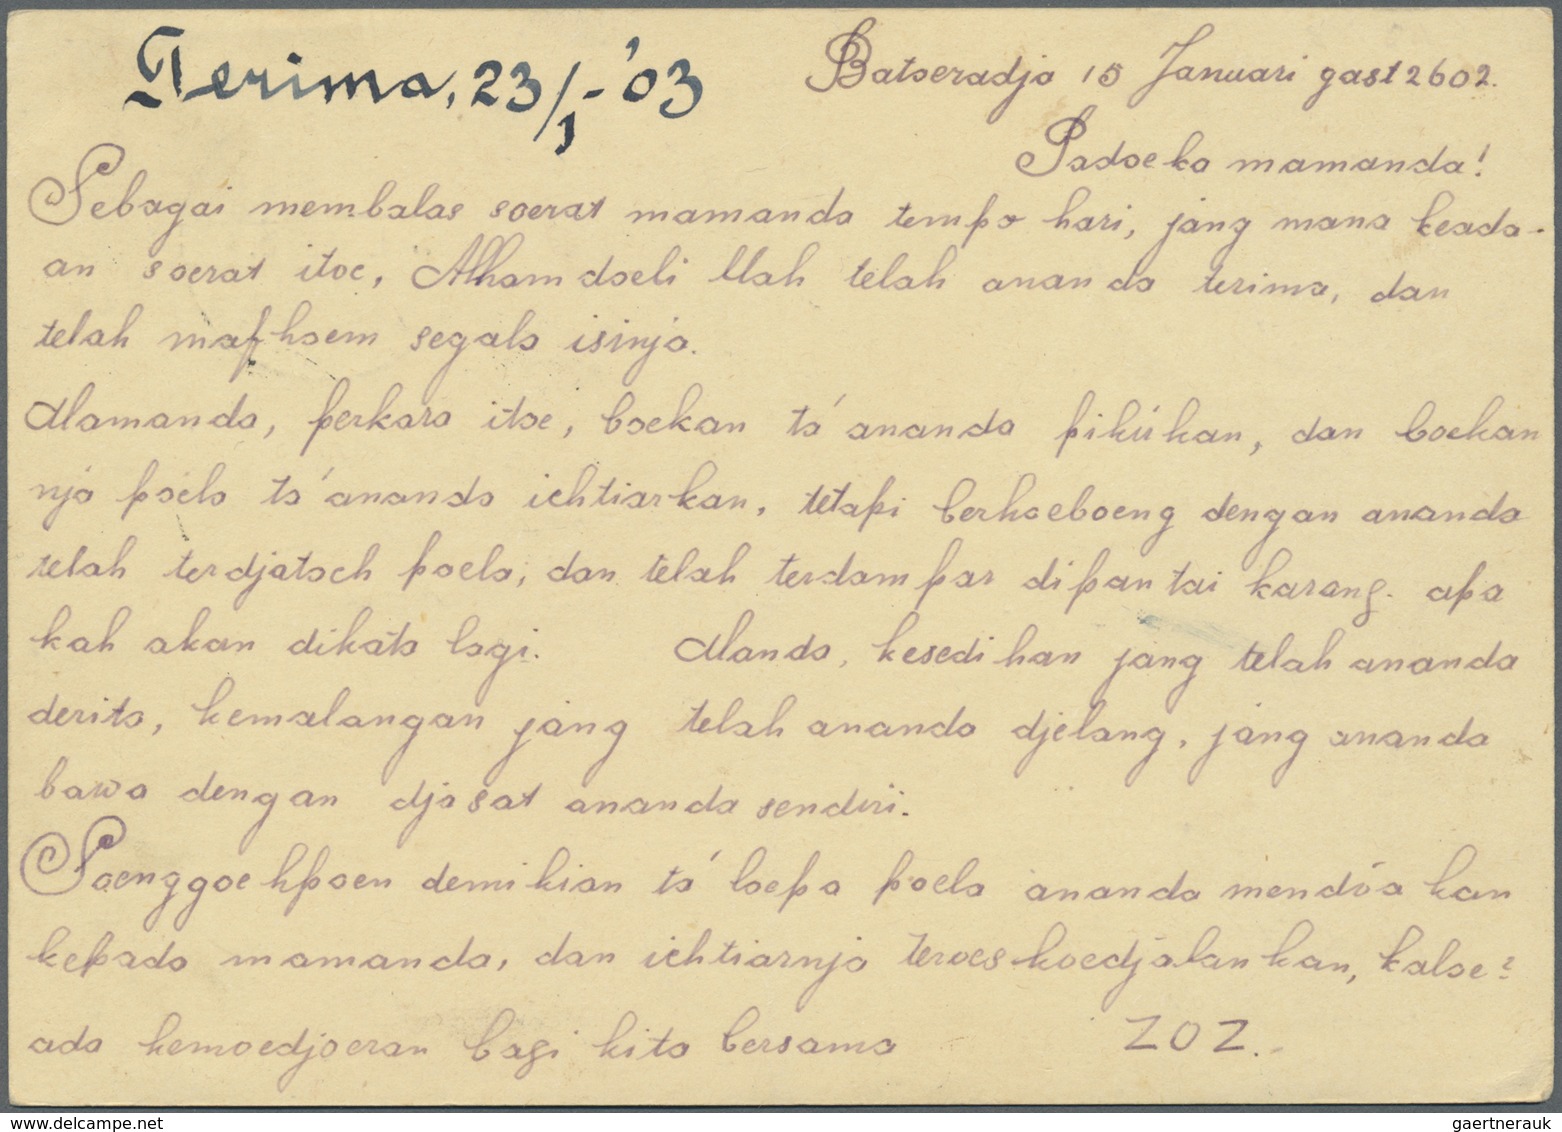 Terima, 23/1-'03
Batoeradja 15 Januari gast 2602.
Padoeka mamanda!
Sebagai membalas soerat mamanda tempo hari, jang mana keada-
an soerat itoe, Alhamdoeli llah telah ananda terima, dan
telah mafhoem segala isinja.
Mamanda, perkara itoe, boekan ta' ananda pikirkan, dan boekan
nja poela ta' ananda ichtiarkan, tetapi berhoeboeng dengan ananda
telah terdjatoeh poela, dan telah terdampar dipantai karang. apa
kah akan dikata lagi. Manda, kesedihan jang telah ananda
derita, kemalangan jang telah ananda djelang, jang ananda
bawa dengan djasat ananda sendiri.
Soenggoehpoen demikian ta' loepa poela ananda mendo'a kan
kepada mamanda, dan ichtiarnja teroes koedjalankan, kaloe2
ada kemoedjoeran bagi kita bersama
ZOZ.-
gaertnerauk